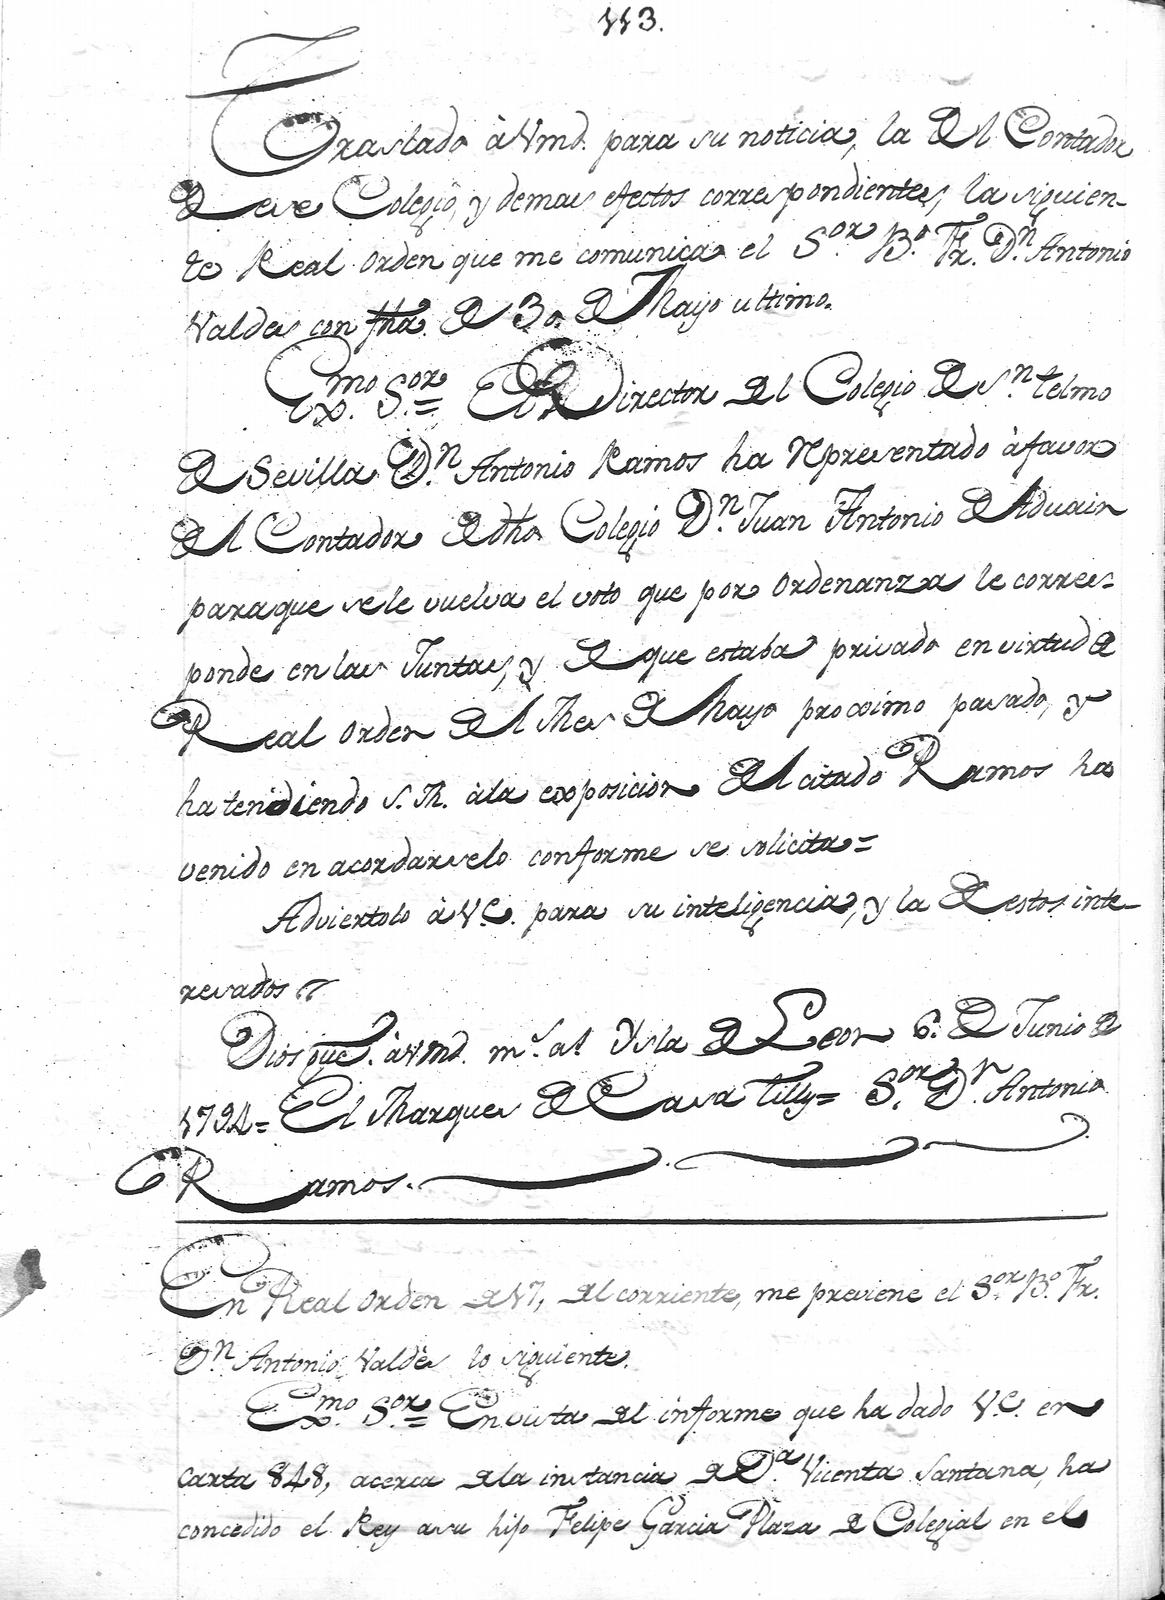 113.
Traslado à Vmd. para su noticia, la del Contador
de ese Colegio, y demas efectos correspondientes, la siguien-
te Real Orden que me comunica el S.or B.o Fr. D.n Antonio
Valdes con fha. de 30. de Mayo ultimo.
Ex.mo S.or = El Director del Colegio de S.n telmo
de Sevilla D.n Antonio Ramos ha representado à favor
del Contador de dho Colegio D.n Juan Antonio de Aduain
para que se le vuelva el voto que por Ordenanza le corres-
ponde en las Juntas, y de que estaba privado en virtud de
Real Orden del Mes de Mayo proximo pasado, y
hatendiendo S. M. à la exposicion del citado Ramos ha
venido en acordarselo conforme se solicita =
Adviertolo à V.E. para su inteligencia, y la de estos inte-
resados
Dios gue. à Vmd. m.s a.s Ysla de Leon 6. de Junio de
1794 = El Marques de Casa Tilly = S.or D.n Antonio
Ramos.
En Real Orden de 17, del corriente, me previene el S.or B.o Fr.
D.n Antonio Valdès lo siguiente.
Ex.mo S.or = En vista del informe que ha dado V.E. en
carta 848, acerca de la instancia de D.a Vicenta Santana, ha
concedido el Rey a su hijo Felipe Garcia Plaza de Colegial en el